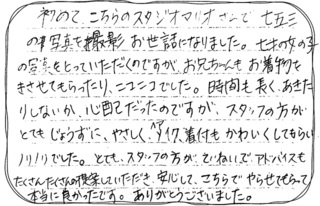 初めて、こちらのスタジオマリオさんで七五三
の写真を撮影 お世話になりました。七才の女の子
の写真をとっていただくのですが、お兄ちゃんもお着物を
きさせてもらったり、ニコニコでした。時間も長く、あきた
りしないか、心配だったのですが、スタッフの方が
とてもじょうずに、やさしく、ヘアメイク、着付もかわいくしてもらい
ノリノリでした。とても、スタッフの方が、ていねいで、アドバイスも
たくさんたくさんの提案していただき、安心して、こちらでやらせてもらって
本当に良かったです。ありがとうございました。